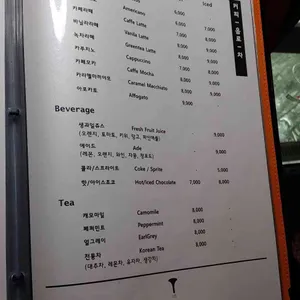 Iced
커피·음료·차
Americano
카페라떼 Caffe Latte 6,000 7,000
바닐라라떼 Vanilla Latte
녹차라떼 Greentea Latte 9,000
카푸치노 Cappuccino
카페모카 Caffe Mocha 8,000
카라멜마끼아또 Caramel Macchiato 9,000
아포가토 Affogato 9,000
Beverage
생과일쥬스 Fresh Fruit Juice - 9,000
(오렌지, 토마토, 키위, 망고, 파인애플)
에이드 Ade - 9,000
(레몬, 오렌지, 와인, 자몽, 청포도)
콜라/스프라이트 Coke / Sprite - 5,000
핫/아이스초코 Hot/Iced Chocolate 7,000 8,000
Tea
캐모마일 Camomile 8,000
페퍼민트 Peppermint 8,000
얼그레이 EarlGrey 8,000
전통차 Korean Tea 8,000
(대추차, 레몬차, 유자차, 생강차)